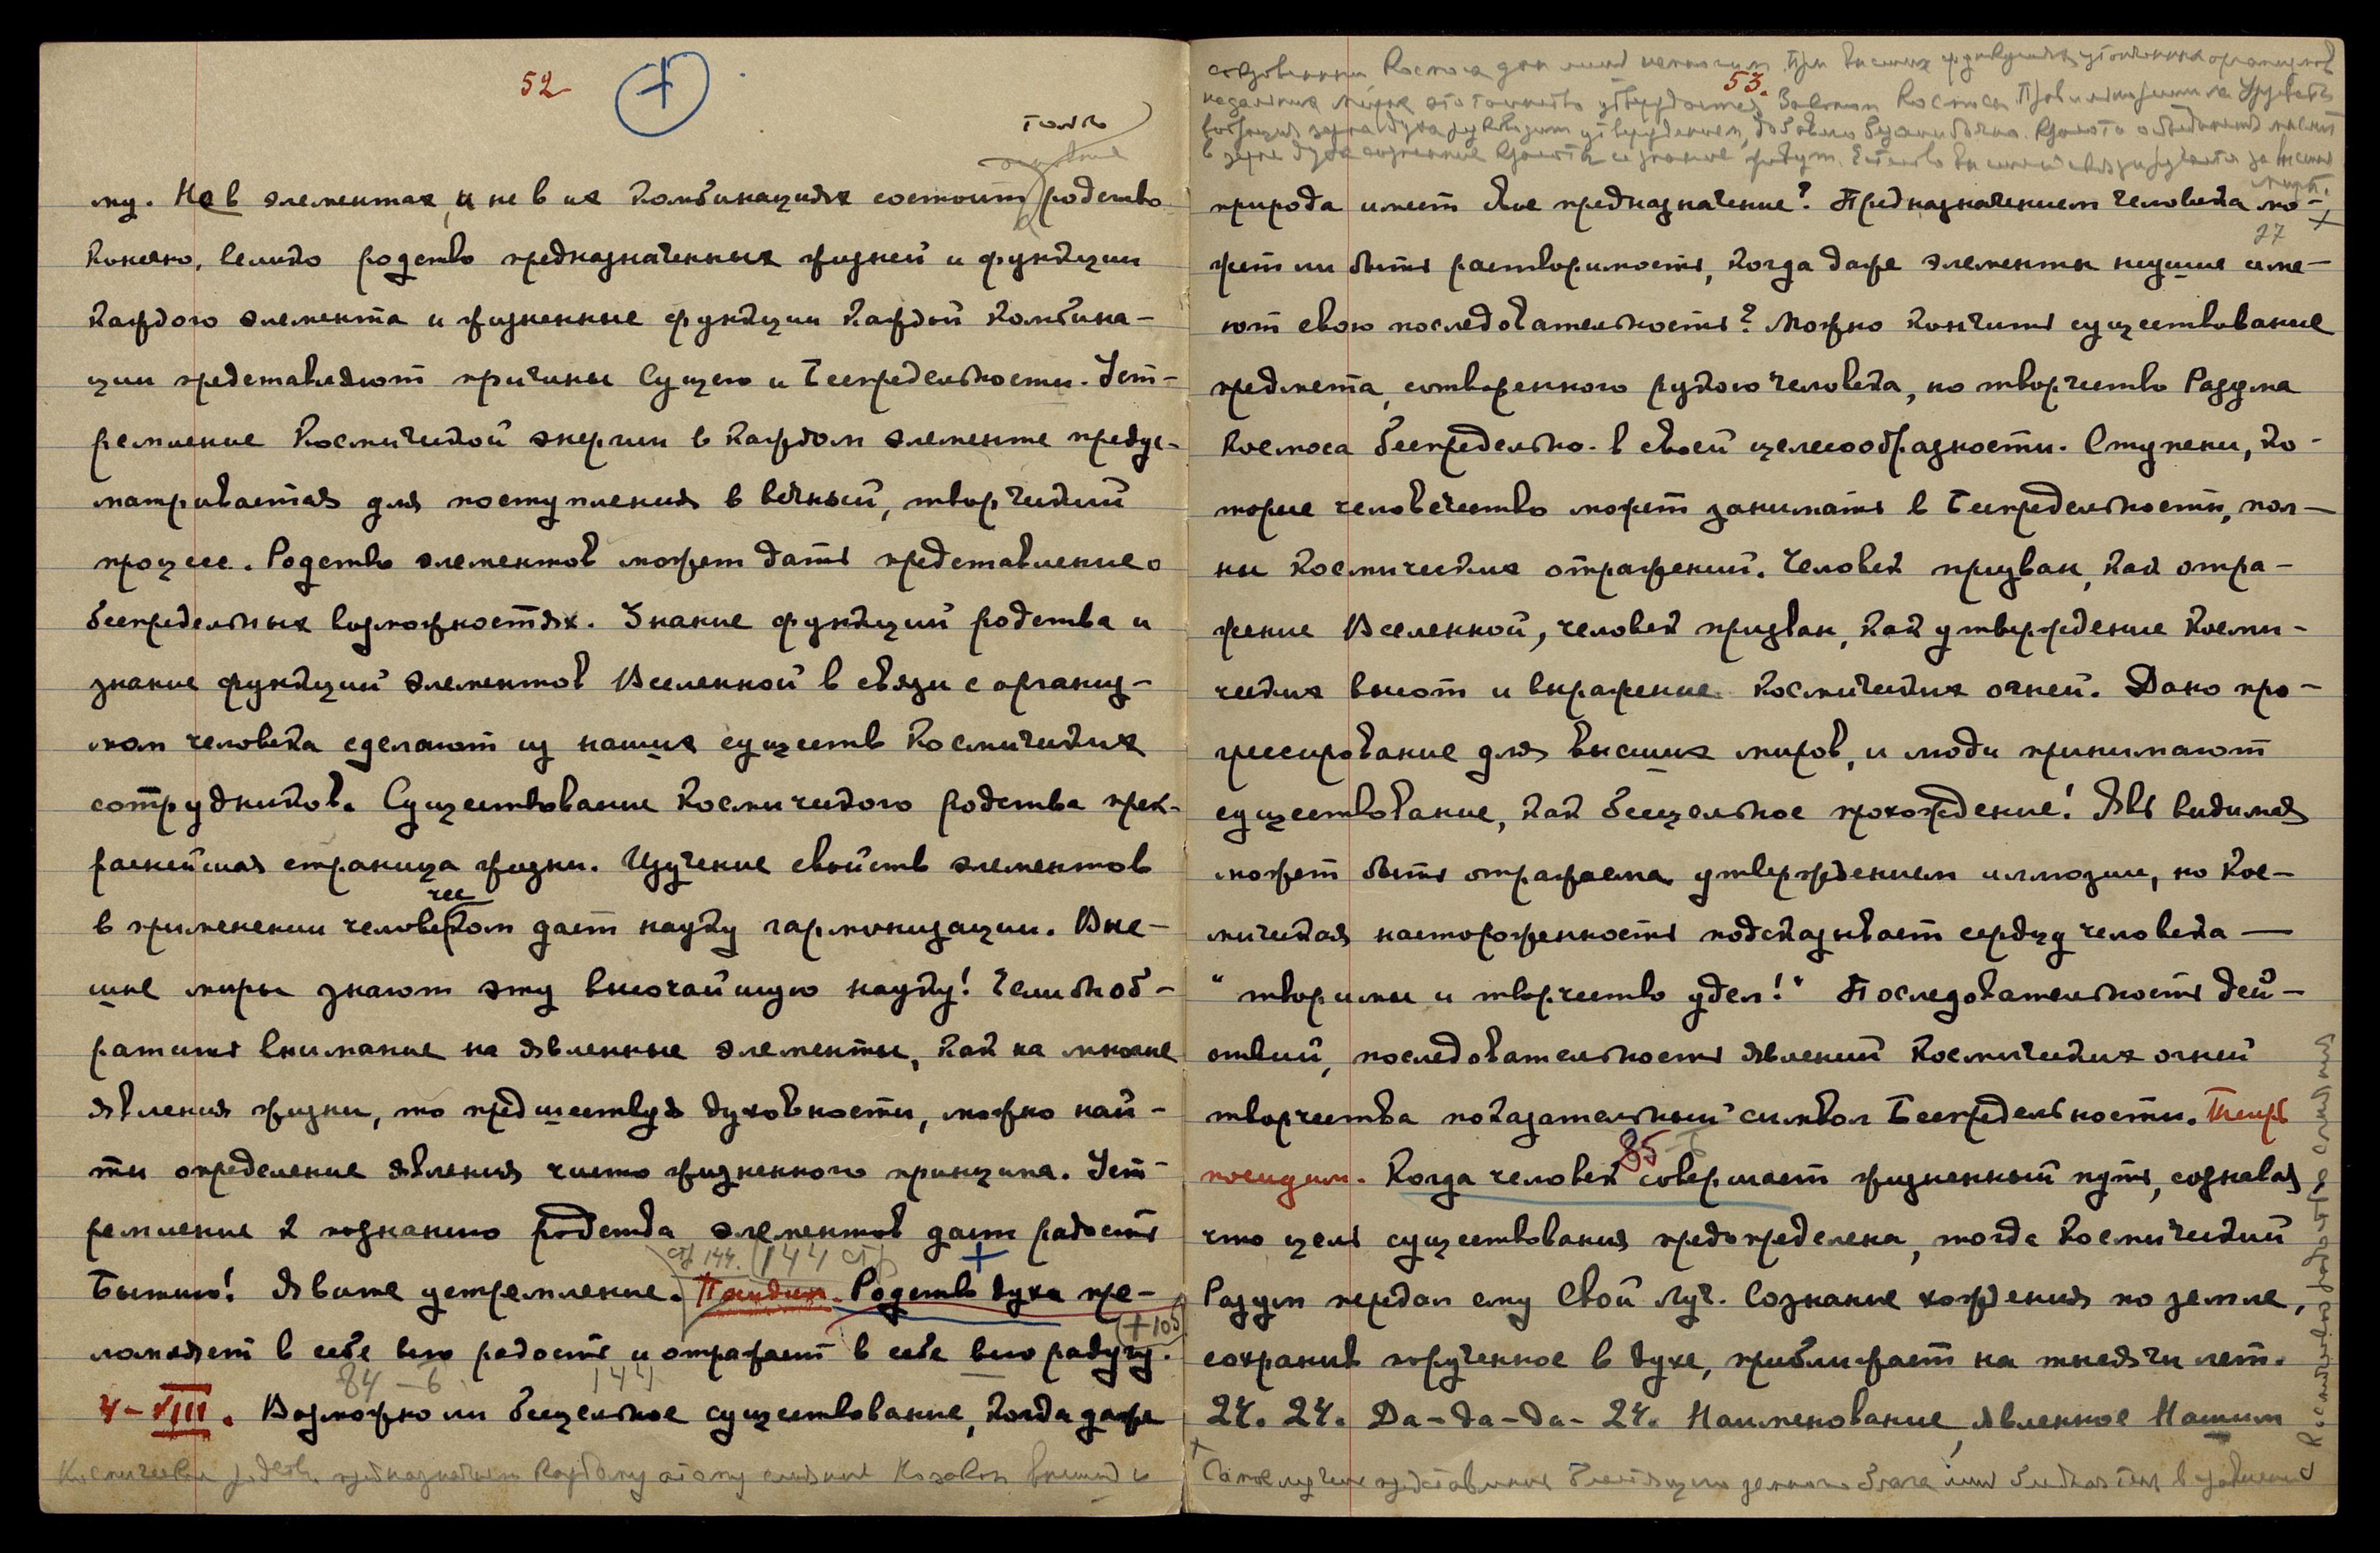 52
+
только
му. Не в элементах, и не в их комбинациях состоит родство
Конечно, велико родство предназначенных жизней и функции
каждого элемента и жизненные функции каждой комбина-
ции представляют причины Сущего и Беспредельности. Уст-
ремление Космической энергии в каждом элементе предус-
матривается для поступления в вечный, творческий
процесс. Родство элементов может дать представление о
беспредельных возможностях. Знание функций родства и
знание функций элементов Вселенной в связи с организ-
мом человека сделают из наших существ Космических
сотрудников. Существование Космического родства прек-
раснейшая страница жизни. Изучение свойств элементов
чес
в применении человеком дает науку гармонизации. Выс-
шие миры знают эту высочайшую науку! Если б об-
ратить внимание на явленные элементы, как на многие
явления жизни, то предшествуя духовности, можно най-
ти определение явления чисто жизненного принципа. Уст-
ремление к познанию родства элементов дает радость
стр 144. (144 ст)
Бытию! Явите устремление. Посидим. Родство духа пре-
(+105
ломляет в себе всю радость и отражает в себе всю радугу.
84 – б 144
4–VIII. Возможно ли бесцельное существование, когда даже
Космическое родство предназначает каждому атому слияние
53.
природа имеет свое предназначение? Предназначением человека мо-
27
жет ли быть растворимость, когда даже элементы низшие име-
ют свою последовательность? Можно кончить существование
предмета, сотворенного рукою человека, но творчество Разума
Космоса беспредельно в своей целесообразности. Ступени, ко-
торые человечество может занимать в Беспредельности, пол-
ны космических отражений. Человек призван, как отра-
жение Вселенной, человек призван, как утверждение Косми-
ческих высот и выражение Космических огней. Дано про-
грессирование для высших миров, и люди принимают
существование, как бесцельное прохождение! Явь видимая
может быть отражаема утверждением иллюзии, но Кос-
мическая настороженность подсказывает сердцу человека —
"творимы и творчество удел!" Последовательность дей-
ствий, последовательность явлений Космических огней
творчества показательный символ Беспредельности. Теперь
85 – б
посидим. Когда человек совершает жизненный путь, сознавая,
что цель существования предопределена, тогда Космический
Разум передал ему Свой Луч. Сознание хождения по земле,
сохранив порученное в духе, приближает на тысячи лет.
24. 24. Да – да – да – 24. Наименование, явленное Нашим
Самое лучшее представление блестящего земного брака лишь бледная тень в сравнении